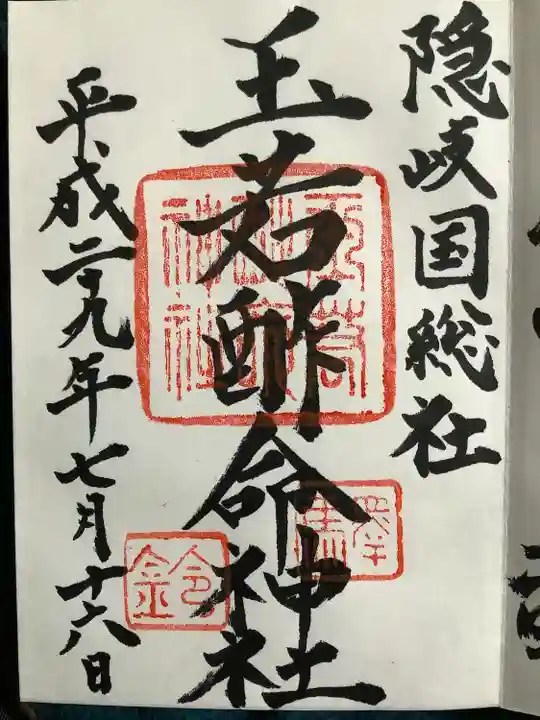 隠岐国総社
玉若酢命神社
平成二十九年七月十六日